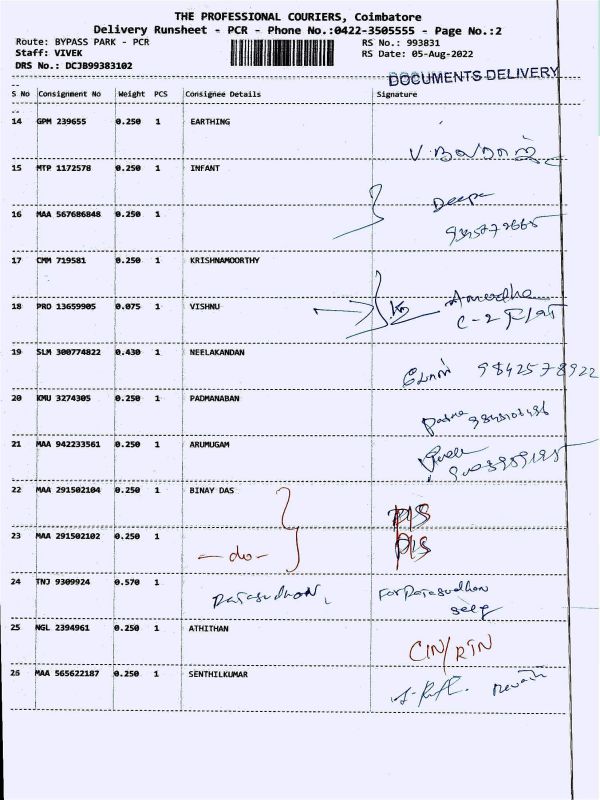 THE PROFESSIONAL COURIERS, Coimbatore
Delivery Runsheet - PCR - Phone No.:0422-3505555 - Page No.:2
Route: BYPASS PARK - PCR RS No.: 993831
Staff: VIVEK RS Date: 05-Aug-2022
DRS No.: DCJB99383102
DOCUMENTS DELIVERY
S No Consignment No Weight PCS Consignee Details Signature
14 GPM 239655 0.250 1 EARTHING
15 MTP 1172578 0.250 1 INFANT
Deepa
16 MAA 567686848 0.250 1
17 CMM 719581 0.250 1 KRISHNAMOORTHY
18 PRO 13659905 0.075 1 VISHNU
C-2
19 SLM 300774822 0.430 1 NEELAKANDAN
9842578922
20 KMU 3274305 0.250 1 PADMANABAN
Padma
21 MAA 942233561 0.250 1 ARUMUGAM
22 MAA 291502104 0.250 1 BINAY DAS
23 MAA 291502102 0.250 1
- do -
24 TNJ 9309924 0.570 1
25 NGL 2394961 0.250 1 ATHITHAN
CIN/RTN
26 MAA 565622187 0.250 1 SENTHILKUMAR